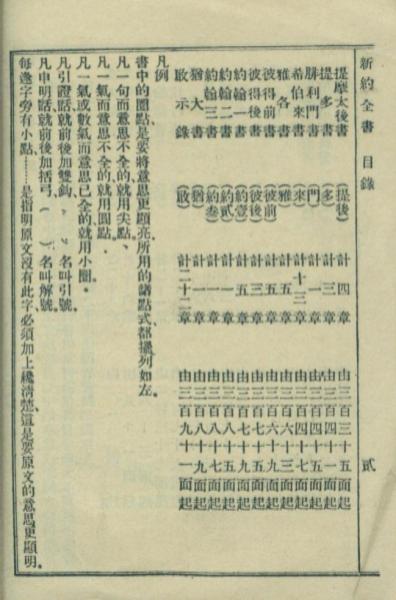 新約全書 目錄 貳
提摩太後書 (提後) 計四章 由三百三十五面起
提多書 (多) 計三章 由三百四十一面起
腓利門書 (門) 計一章 由三百四十五面起
希伯來書 (來) 計十三章 由三百四十七面起
雅各書 (雅) 計五章 由三百六十三面起
彼得前書 (彼前) 計五章 由三百六十九面起
彼得後書 (彼後) 計三章 由三百七十五面起
約翰一書 (約壹) 計五章 由三百七十九面起
約翰二書 (約貳) 計一章 由三百八十五面起
約翰三書 (約叁) 計一章 由三百八十七面起
猶大書 (猶) 計一章 由三百八十九面起
啟示錄 (啟) 計二十二章 由三百九十一面起
凡例
書中的圈點、是要將意思更顯亮、所用的諸點式、都擺列如左。
凡一句而意思不全的、就用尖點、
凡一氣而意思不全的、就用圓點．
凡一氣或數氣而意思已全的、就用小圈。
凡引證話、就前後加雙鈎、名叫引號。
凡申明話、就前後加括弓、( )名叫解號。
每逢字旁有小點……是指明原文沒有此字、必須加上纔清楚、這是要原文的意思更顯明。